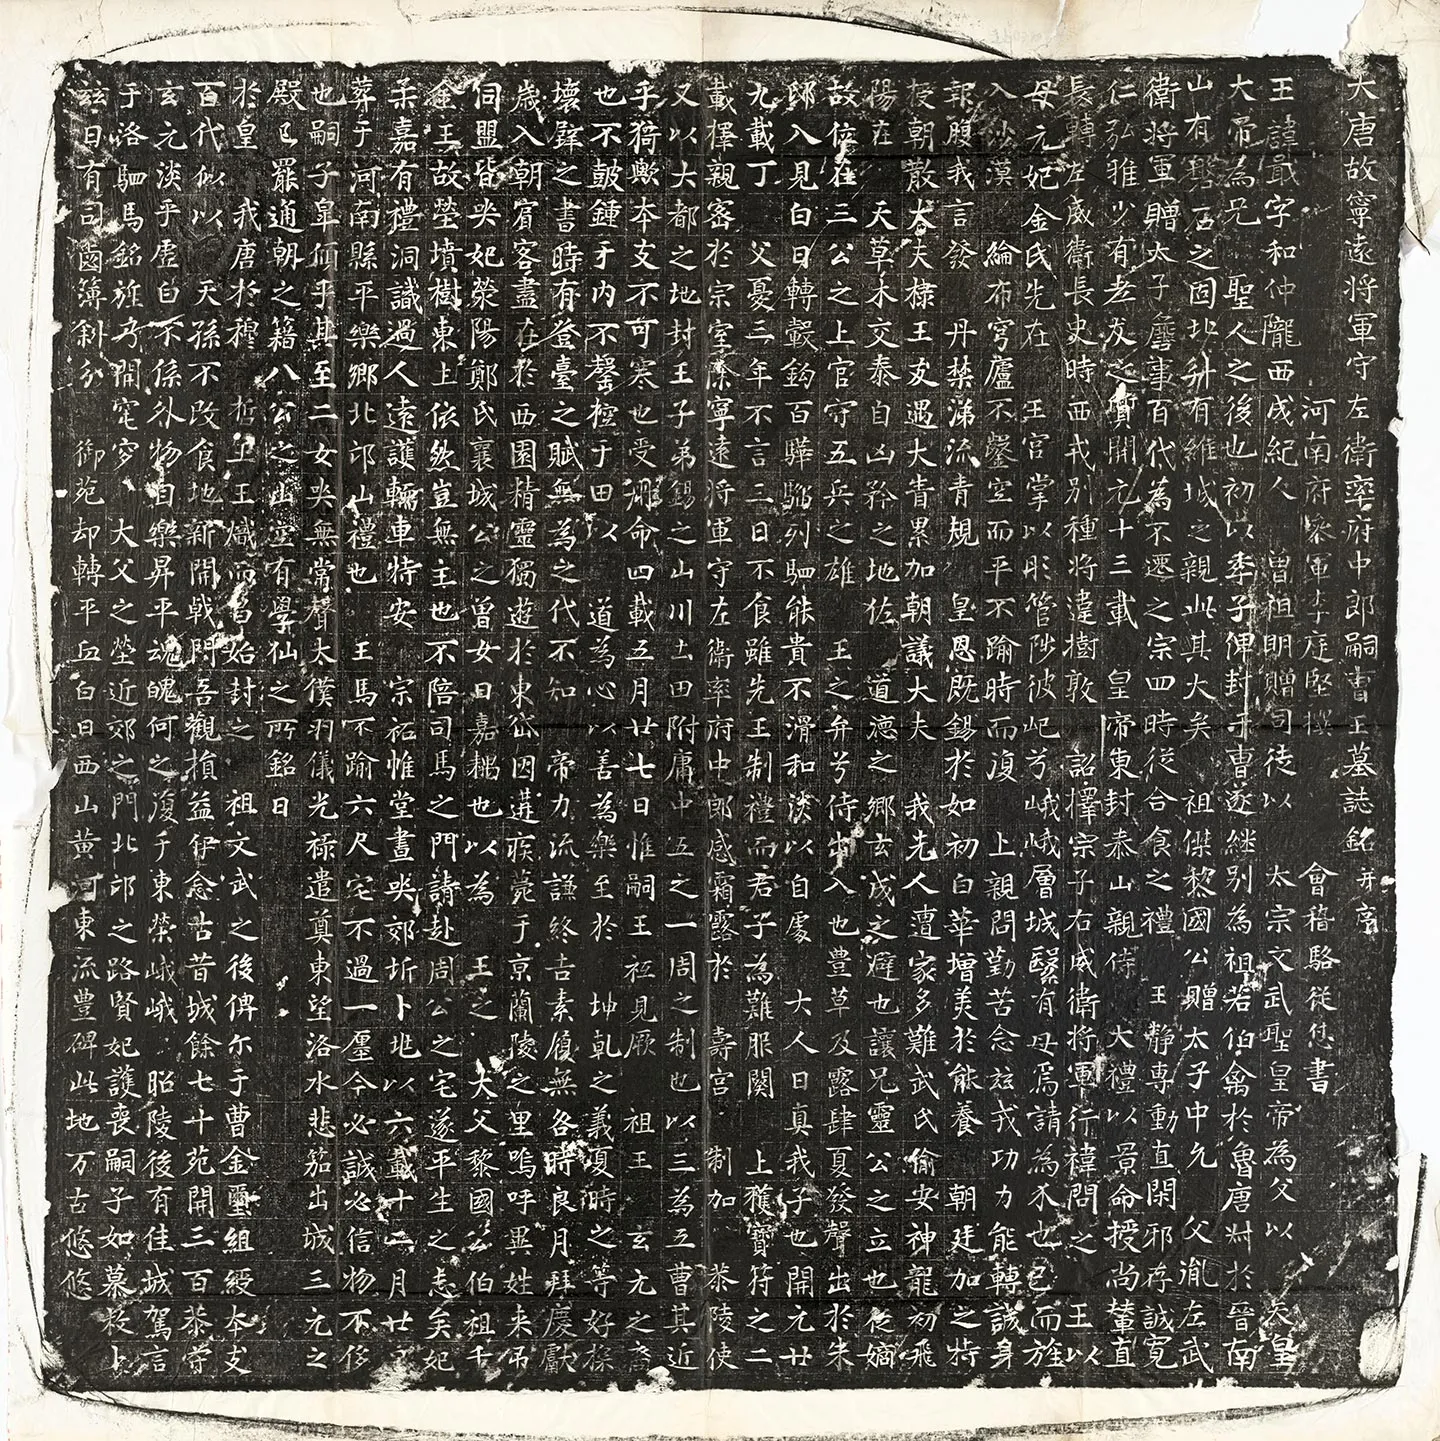 大唐故寧遠將軍守左衛率府中郎嗣曹王墓誌銘 并序
河南府參軍李庭堅撰 會稽駱從愻書
王諱戢字和仲隴西成紀人 曾祖明贈司徒以 太宗文武聖皇帝為父以 天皇
大帝為兄 聖人之後也初以季子俾封于曹遂継別為祖若伯禽於魯唐叔於晉南
山有磐石之固北升有維城之親此其大矣 祖傑黎國公贈太子中允 父胤左武
衛將軍贈太子詹事百代為不遷之宗四時從合食之禮 王靜專動直閑邪存誠寬
仁弘雅少有老友之質開元十三載 皇帝東封泰山親侍 大禮以景命授尚輦直
長轉左威衛長史時西戎別種將違樹敦 詔擇宗子右威衛將軍行褘問之 王以
母元妃金氏先在 王官掌以彤管陟彼屺兮峨峨層城翳有母焉請為介也已而旌
入沙漠 綸布穹廬不鑿空而平不踰時而復 上親問勤苦念茲戎功力能轉誠身
報腹我言發 丹禁涕流青規 皇恩既錫於如初白華增美於能養 朝廷加之特
授朝散大夫棣王友遇大青累加朝議大夫 我先人遭家多難武氏偷安神龍初飛
陽在 天草木交泰自凶矜之地佐 道德之鄉玄成之避也讓兄靈 公之立也從嫡
故位在三公之上官守五兵之雄 王之弁兮侍出入也豊草及露肆夏發聲出於朱
邸入見白日轉轂鈞百驊騮列駟能貴不滑和淡以自處 大人日真我子也開元廿
九載丁 父憂三年不言三日不食雖先王制禮而君子為難服闋 上獲寶符之二
載擇親密於宗室除寧遠將軍守左衛率府中郎感霜露於 壽宮 制加 恭陵使
又以大都之地封王子弟錫之山川土田附庸中五之一周之制也以三為五曹其近
乎猗歟本支不可寒也受 命四載五月廿七日惟嗣王祗見厥 祖王 玄元之裔
也不鼓鍾于內不罄控于田以 道為心以善為樂至於 坤軋之義夏時之等好操
壞壁之書時有登臺之賦無為之代不知 帝力流謙終吉素履無咎時良月拜慶獻
歲入朝賓客盡在於西園精靈獨遊於東岱因遘疾薨于京蘭陵之里嗚呼異姓来吊
同盟皆哭妃滎陽鄭氏襄城公之曾女曰嘉耦也以為 王之 大父黎國公伯祖千
金王故塋墳樹東上依然豈無主也不陪司馬之門詩赴周公之宅遂平生之志矣妃
柔嘉有禮洞識過人遠護輀車特安 宗祏惟堂晝哭郊圻卜地以六載十二月廿二
葬于河南縣平樂鄉北邙山禮也 王馬不踰六尺宅不過一廛今必誠必信物不侈
也嗣子皐佪乎其至二女哭無常聲太僕羽儀光祿遣奠東望洛水悲笳出城三元之
殿已罷通朝之籍八公之山空有學仙之所銘曰
於皇 我唐於穆 哲王王熾而昌始封之 祖文武之後俾尓于曹金璽組綬本支
百代似以 天孫不改食地新開戟門吾觀損益伊念古昔城餘七十苑開三百恭守
玄元淡乎虛白不係外物自樂昇平魂魄何之復于東榮峨峨 昭陵後有佳城駕言
于洛駟馬銘旌乃開窀穸 大父之塋近郊之門北邙之路賢妃護喪嗣子如慕牧卜
玆日有司鹵簿斜分 御苑却轉平丘白日西山黃河東流豊碑此地万古悠悠